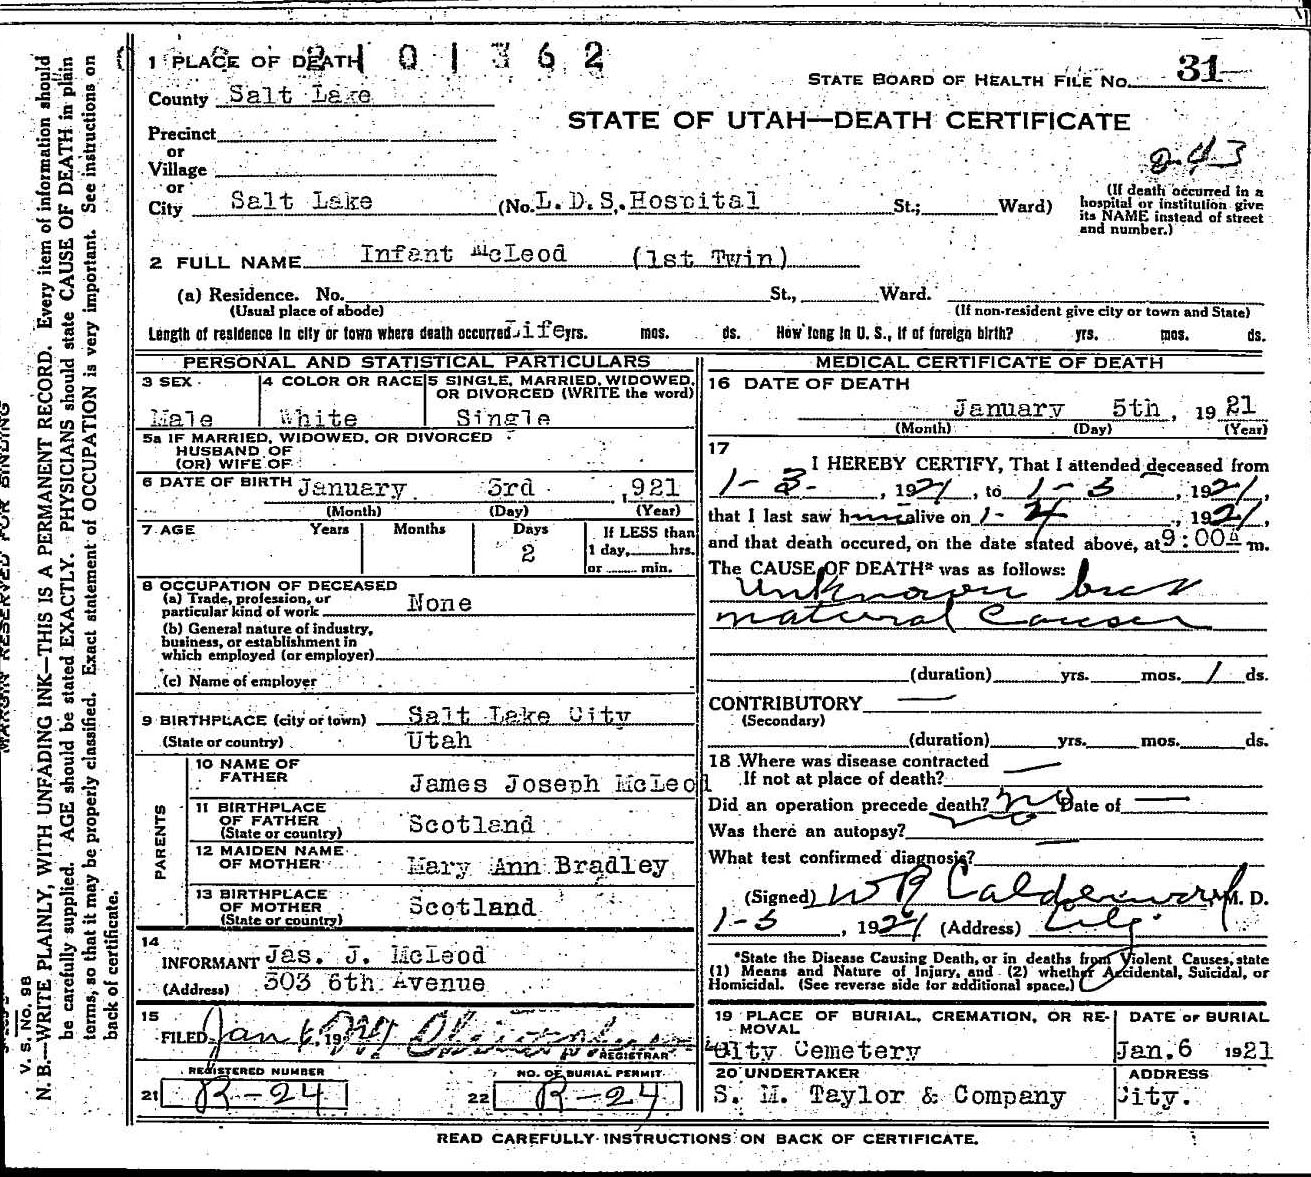 2101362
1 PLACE OF DEATH
STATE BOARD OF HEALTH FILE No. 31
County Salt Lake
STATE OF UTAH—DEATH CERTIFICATE
Precinct
or
Village
2-43
or
City Salt Lake (No. L.D.S. Hospital St.; Ward)
(If death occurred in a
hospital or institution give
its NAME instead of street
and number.)
2 FULL NAME Infant McLeod (1st Twin)
(a) Residence. No. St., Ward.
(Usual place of abode) (If non-resident give city or town and State)
Length of residence in city or town where death occurred Life yrs. mos. ds. How long in U. S., if of foreign birth? yrs. mos. ds.
PERSONAL AND STATISTICAL PARTICULARS
3 SEX
Male
4 COLOR OR RACE
White
5 SINGLE, MARRIED, WIDOWED,
OR DIVORCED (WRITE the word)
Single
5a IF MARRIED, WIDOWED, OR DIVORCED
HUSBAND OF
(OR) WIFE OF
6 DATE OF BIRTH January 3rd , 921
(Month) (Day) (Year)
7 AGE Years Months Days
2
If LESS than
1 day, hrs.
or min.
8 OCCUPATION OF DECEASED
(a) Trade, profession, or
particular kind of work None
(b) General nature of industry,
business, or establishment in
which employed (or employer)
(c) Name of employer
9 BIRTHPLACE (city or town) Salt Lake City
(State or country) Utah
PARENTS
10 NAME OF
FATHER James Joseph McLeod
11 BIRTHPLACE
OF FATHER Scotland
(State or country)
12 MAIDEN NAME
OF MOTHER Mary Ann Bradley
13 BIRTHPLACE
OF MOTHER Scotland
(State or country)
14
INFORMANT Jas. J. McLeod
(Address) 303 6th Avenue
15
FILED Jan 6, 19
REGISTRAR
REGISTERED NUMBER
21 R-24
NO. OF BURIAL PERMIT
22 R-24
MEDICAL CERTIFICATE OF DEATH
16 DATE OF DEATH
January 5th, 19 21
(Month) (Day) (Year)
17
I HEREBY CERTIFY, That I attended deceased from
1-3-, 1921, to 1-5, 1921,
that I last saw him alive on 1-4, 1921,
and that death occured, on the date stated above, at 9:00A m.
The CAUSE OF DEATH* was as follows:
Unknown but
natural Causes
(duration) yrs. mos. 1 ds.
CONTRIBUTORY —
(Secondary)
(duration) yrs. mos. ds.
18 Where was disease contracted
If not at place of death? —
Did an operation precede death? no Date of —
Was there an autopsy? no
What test confirmed diagnosis? —
(Signed) W R Calderwood, M. D.
1-5, 1921 (Address) City.
*State the Disease Causing Death, or in deaths from Violent Causes, state
(1) Means and Nature of Injury, and (2) whether Accidental, Suicidal, or
Homicidal. (See reverse side for additional space.)
19 PLACE OF BURIAL, CREMATION, OR RE-
MOVAL
City Cemetery
DATE OF BURIAL
Jan. 6 1921
20 UNDERTAKER
S. M. Taylor & Company
ADDRESS
City.
READ CAREFULLY INSTRUCTIONS ON BACK OF CERTIFICATE.
MARGIN RESERVED FOR BINDING
V. S. No. 98
N. B.—WRITE PLAINLY, WITH UNFADING INK—THIS IS A PERMANENT RECORD. Every item of information should
be carefully supplied. AGE should be stated EXACTLY. PHYSICIANS should state CAUSE OF DEATH in plain
terms, so that it may be properly classified. Exact statement of OCCUPATION is very important. See instructions on
back of certificate.